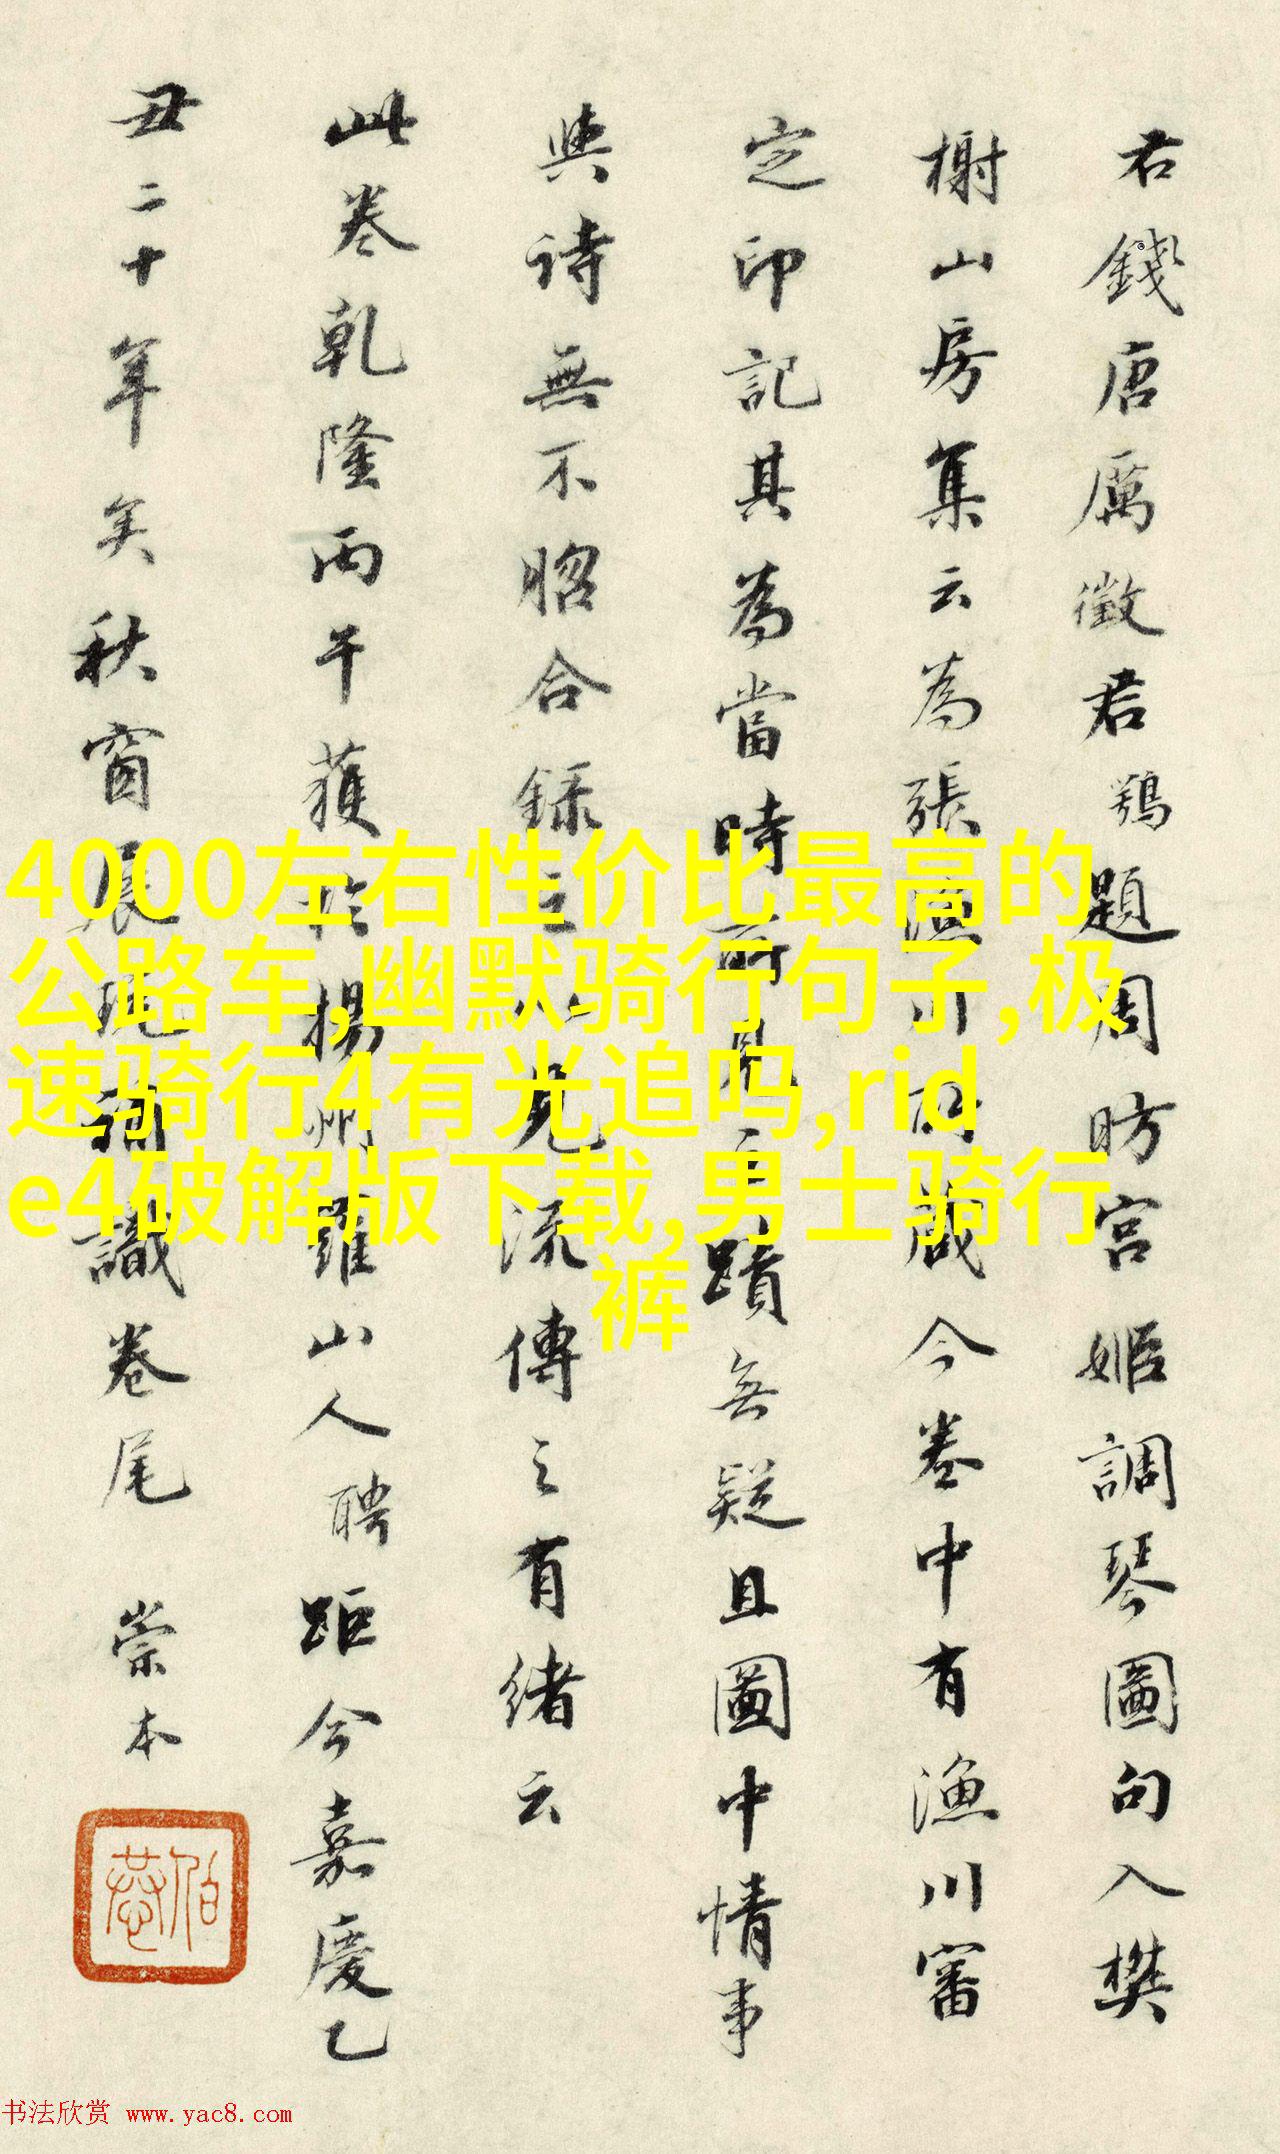 君錢唐厲徵君鶚題周昉宮姬調琴圖句入樊
榭山房集云為張漁川所藏今卷中有漁川審
定印記其為當時所見之蹟無疑且圖中情事
與詩無不昭合錄之以見流傳之有緒云
此卷乾隆丙午獲於揚州羅山人聘距今嘉慶乙
丑二十年矣秋窗展玩謹識卷尾 崇本
4000左右性价比最高的
公路车,幽默骑行句子,极
速骑行4有光追吗,rid
e4破解版下载,男士骑行
裤
书法欣赏 www.yac8.com